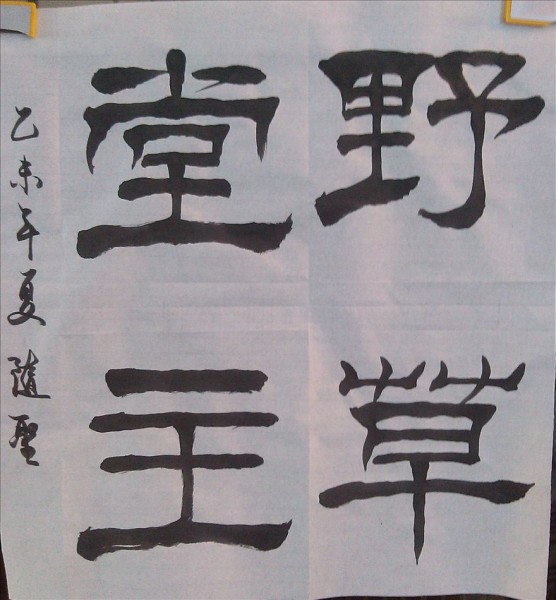 野草
堂主
乙未年夏随聖